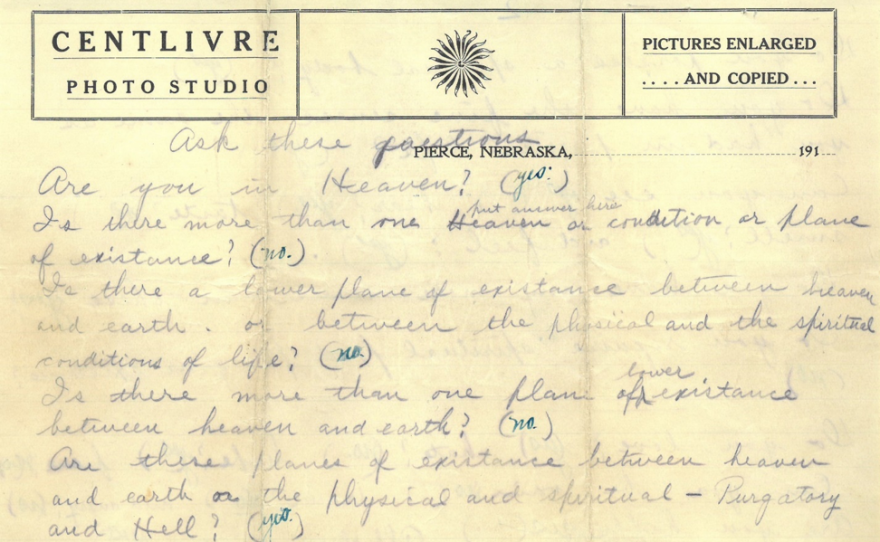 CENTLIVRE
PHOTO STUDIO
PICTURES ENLARGED
.... AND COPIED ...
Ask these questions
PIERCE, NEBRASKA, 191
Are you in Heaven? (yes.)
put answer here
Is there more than one Heaven or condition, or plane
of existance? (no.)
Is there a lower plane of existance between heaven
and earth. or between the physical and the spiritual
conditions of life? (no.)
lower
Is there more than one plane of existance
between heaven and earth? (no.)
Are these planes of existance between heaven
and earth or the physical and spiritual – Purgatory
and Hell? (yes.)